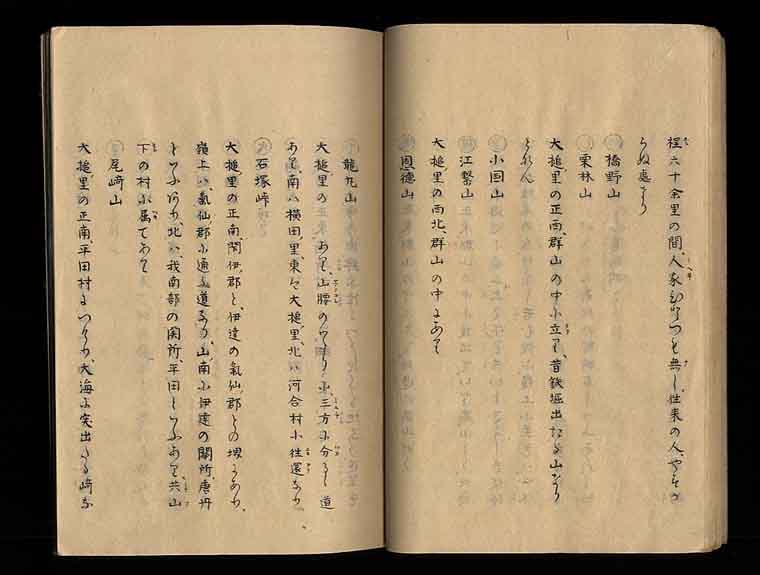 程六十余里の間、人家ひとつも無し、往来の人、やすか
らぬ處なり
橋野山
栗林山
大槌里の正西、群山の中に立り、昔鉄堀出たる山なり
とそ
小国山
江繋山
大槌里の西北、群山の中にあり
恩徳山
龍九山
大槌里の正東にあり、山腰の 三方に分る 道
あり、南ハ横田里、東ハ大槌里、北ハ河合村に往還なり
石塚峠
大槌里の正南、閉伊郡と、伊達の気仙郡との堺なり
嶺上ハ、気仙郡に通る道なり、山南に伊達の関所、唐丹
といふあり、北ハ、我南部の関所、平田といふあり、共山
下の村に属てあり
尾﨑山
大槌里の正南、平田村につゝきて、大海に突出たる崎な